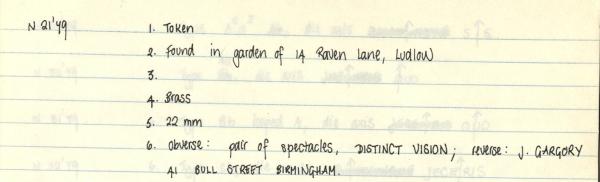 N 21'49 1. Token
2. Found in garden of 14 Raven Lane, Ludlow
3.
4. Brass
5. 22 mm
6. obverse: pair of spectacles, DISTINCT VISION; reverse: J. GARGORY
41 BULL STREET BIRMINGHAM.